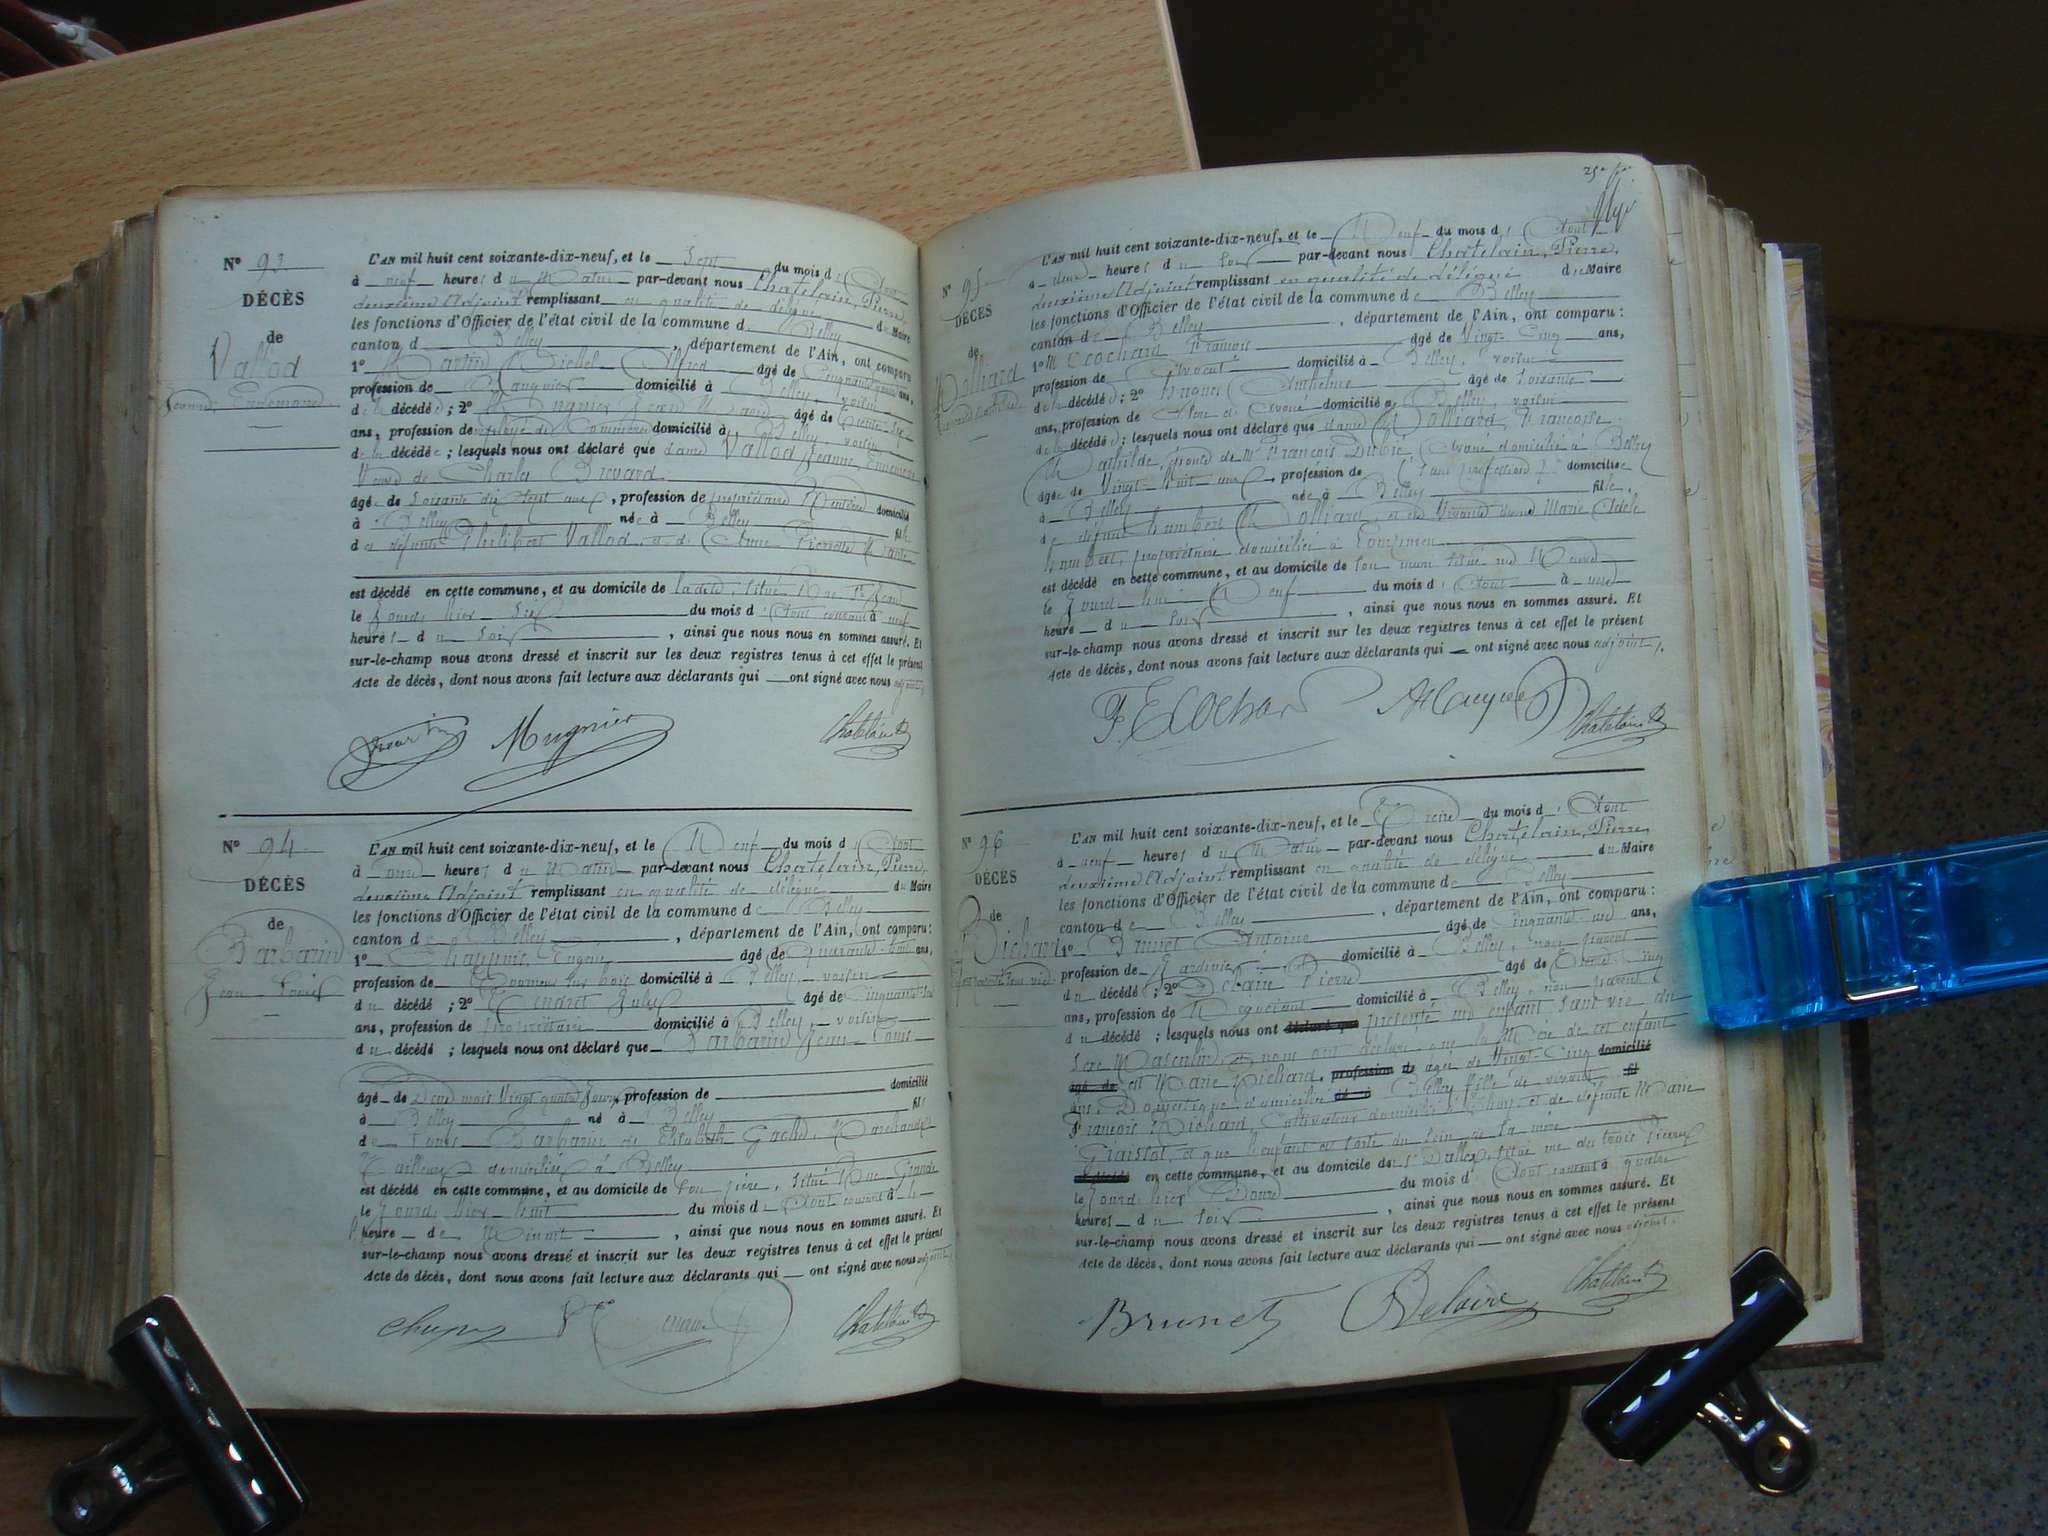 N° 93
DÉCÈS
de
Vallod
Jeanne Ennemonde
L'AN mil huit cent soixante-dix-neuf, et le Sept du mois d'Août
à neuf heures du Matin par-devant nous Chatelain, Pierre,
deuxième Adjoint remplissant en qualité de délégué du Maire
les fonctions d'Officier de l'état civil de la commune de Belley
canton de Belley, département de l'Ain, ont comparu
1° Martin Alfred âgé de ans,
profession de Banquier domicilié à Belley, voisin
de la décédée; 2° Mugnier Jean Marie âgé de Trente-six
ans, profession de employé de Commerce domicilié à Belley, voisin
de la décédée; lesquels nous ont déclaré que dame Vallod Jeanne Ennemonde
Veuve de Charles Brevard
âgée de Soixante dix sept ans, profession de propriétaire Rentière domicilié
à Belley née à Belley fille
de défunts Philibert Vallod et de Anne Pierrette
est décédé en cette commune, et au domicile de ladite, situé Rue St Jean
le Jourd'hier Six du mois d'Août courant à neuf
heures du Soir, ainsi que nous nous en sommes assuré. Et
sur-le-champ nous avons dressé et inscrit sur les deux registres tenus à cet effet le présent
Acte de décès, dont nous avons fait lecture aux déclarants qui ont signé avec nous adjoint.
Martin Mugnier Chatelain P.
N° 94
DÉCÈS
de
Barbarin
Jean Louis
L'AN mil huit cent soixante-dix-neuf, et le Neuf du mois d'Août
à onze heures du Matin par-devant nous Chatelain, Pierre,
deuxième Adjoint remplissant en qualité de délégué du Maire
les fonctions d'Officier de l'état civil de la commune de Belley
canton de Belley, département de l'Ain, ont comparu:
1° Chapuis, Eugène âgé de Quarante-huit ans,
profession de Tourneur sur bois domicilié à Belley, voisin
du décédé; 2° Tendret Jules âgé de Cinquante-six
ans, profession de propriétaire domicilié à Belley, voisin
du décédé; lesquels nous ont déclaré que Barbarin Jean-Louis
âgé de Deux mois Vingt quatre Jours, profession de domicilié
à Belley né à Belley fils
de Louis Barbarin de Elisabeth Gachd, Marchands
Tailleurs domiciliés à Belley
est décédé en cette commune, et au domicile de son père, situé Rue Grande
le Jourd'hier huit du mois d'Août courant à
heure de Minuit, ainsi que nous nous en sommes assuré. Et
sur-le-champ nous avons dressé et inscrit sur les deux registres tenus à cet effet le présent
Acte de décès, dont nous avons fait lecture aux déclarants qui ont signé avec nous adjoint
Chapuis Chatelain P.
N° 95
DÉCÈS
de
Molliard
L'AN mil huit cent soixante-dix-neuf, et le Neuf du mois d'Août
à heure du Soir par-devant nous Chatelain, Pierre,
deuxième Adjoint remplissant en qualité de délégué du Maire
les fonctions d'Officier de l'état civil de la commune de Belley
canton de Belley, département de l'Ain, ont comparu:
1° M Cochard François âgé de Vingt-Cinq ans,
profession de Avocat domicilié à Belley, voisin
de la décédée; 2° Hugues Anthelme âgé de Soixante
ans, profession de Clerc de Avoué domicilié à Belley, voisin
de la décédée; lesquels nous ont déclaré que dame Molliard, Françoise
Mathilde, épouse de Mr François Dirbié, Avoué domicilié à Belley
âgée de Vingt-huit ans, profession de (Sans profession) domicilié
à Belley née à Belley fille
de défunt humbert Molliard, et de Vivante dame Marie Adèle
humbert, propriétaire domiciliée à
est décédé en cette commune, et au domicile de son mari situé
le Jourd'hui Neuf du mois d'Août à une
heure du Soir, ainsi que nous nous en sommes assuré. Et
sur-le-champ nous avons dressé et inscrit sur les deux registres tenus à cet effet le présent
Acte de décès, dont nous avons fait lecture aux déclarants qui ont signé avec nous adjoint.
F. Cochard Chatelain P.
N° 96
DÉCÈS
de
Richard
L'AN mil huit cent soixante-dix-neuf, et le Treize du mois d'Août
à neuf heures du Matin par-devant nous Chatelain, Pierre,
deuxième Adjoint remplissant en qualité de délégué du Maire
les fonctions d'Officier de l'état civil de la commune de Belley
canton de Belley, département de l'Ain, ont comparu:
1° Brunet Antoine âgé de Cinquante ans,
profession de Jardinier domicilié à Belley, non parent
du décédé; 2° Delaire Pierre âgé de Trente-Cinq
ans, profession de Négociant domicilié à Belley, non parent
du décédé; lesquels nous ont déclaré que présenté un enfant sans vie du
Sexe Masculin, et nous ont déclaré que la Mère de cet enfant
âgé de est Marie Richard, profession de agée de Vingt-Cinq domicilié
ans, Domestique, domiciliée né à Belley fille de vivant fil
François Richard, Cultivateur domicilié à et de défunte Marie
et que l'enfant est sorti du Sein de sa mère
est décédé en cette commune, et au domicile de situé rue des trois
le Jourd'hier Douze du mois d'Août courant à quatre
heures du Soir, ainsi que nous nous en sommes assuré. Et
sur-le-champ nous avons dressé et inscrit sur les deux registres tenus à cet effet le présent
Acte de décès, dont nous avons fait lecture aux déclarants qui ont signé avec nous adjoint.
Brunet Delaire Chatelain P.